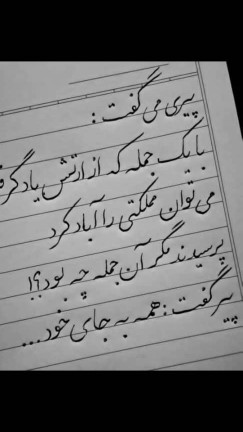 پیری می گفت :
با یک جمله که از ارتش یاد گرف
می توان مملکتی را آباد کرد
پرسیدند مگر آن جمله چه بود؟!
پیر گفت : همه به جای خود...